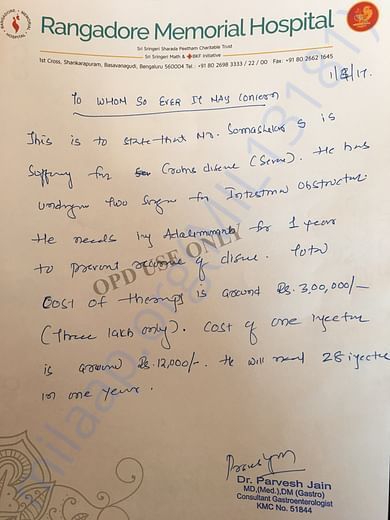 Rangadore Memorial Hospital
Sri Sringeri Sharada Peetham Charitable Trust
Sri Sringeri Math & BKF Initiative
1st Cross, Shankarapuram, Basavanagudi, Bengaluru 560004 Tel.: +91 80 2698 3333 / 22 / 00 Fax: +91 80 2662 1645
To Whom So Ever It May Concern
This is to state that Mr. Somashekar S is
suffering for Crohns disease (Severe). He has
undergone two surgeries for Intestinal obstruction
He needs inj Adalimumab for 1 year
to prevent recurrence of disease. Total
OPD USE ONLY
Cost of therapy is around Rs. 3,00,000/-
(three lakh only). Cost of one injection
is around Rs. 12,000/-. He will need 28 injection
in one year.
Dr. Parvesh Jain
MD,(Med.),DM (Gastro)
Consultant Gastroenterologist
KMC No. 51844